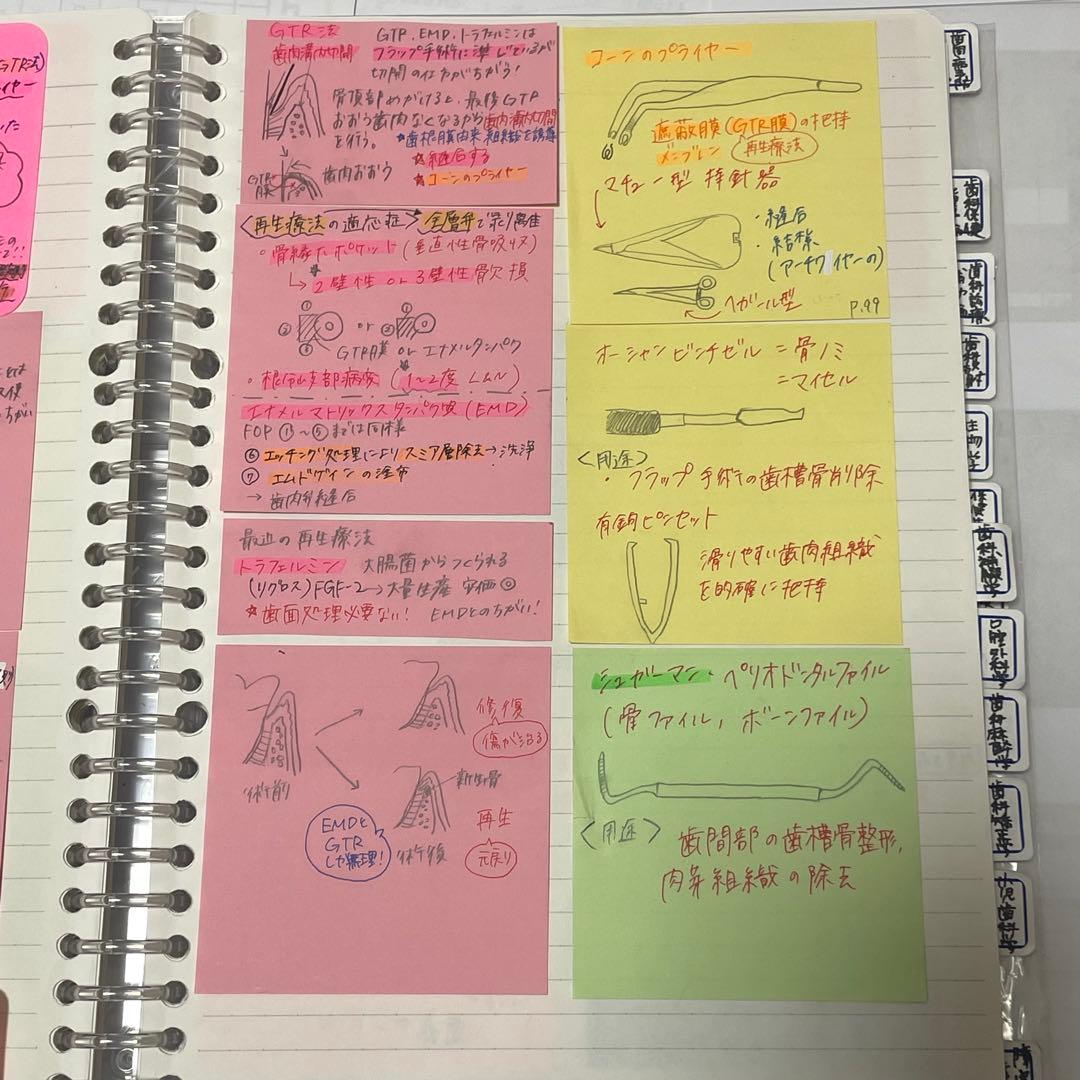 GTR法)
イヤー
GTR法
歯肉溝内切開
GTR、EMD、トラフェルミンは
フラップ手術に準じているが
切開の仕方がちがう!
骨頂部めがけると、最後GTR
おおう歯肉なくなるから歯肉溝内切開
を行う。
★歯根膜由来組織を誘導
☆縫合する
☆コーンのプライヤー
GTR膜
歯肉おおう
<再生療法の適応症> 全層弁で剥離
・骨縁下ポケット(垂直性骨吸収)
↳2壁性 or 3壁性骨欠損
① ② ③ or ① ②
GTR膜 or エナメルタンパク
・根分岐部病変(1〜2度 L&N)
エナメルマトリックスタンパク質(EMD)
FOP ①〜⑤までは同様
⑥ エッチング処理によりスミア層除去→洗浄
⑦ エムドゲインの塗布
→ 歯肉弁縫合
最近の再生療法
トラフェルミン 大腸菌からつくられる
(リグロス)FGF-2→大量生産 安価◎
★歯面処理必要ない! EMDとのちがい!
術前
修復
傷が治る
新生骨
術後
再生
元戻り
EMDと
GTR
しか無理!
コーンのプライヤー
遮蔽膜(GTR膜)の把持
メンブレン 再生療法
マチュー型 持針器
・縫合
・結紮
(アーチワイヤーの)
ヘガール型
P.99
オーシャンビンチゼル = 骨ノミ
= マイセル
<用途>
・フラップ手術での歯槽骨削除
有鈎ピンセット
滑りやすい歯肉組織
を的確に把持
シュガーマン ペリオドンタルファイル
(骨ファイル、ボーンファイル)
<用途> 歯間部の歯槽骨整形、
肉芽組織の除去
生物学
口腔外科学
歯科麻酔学
歯科矯正学
小児歯科学